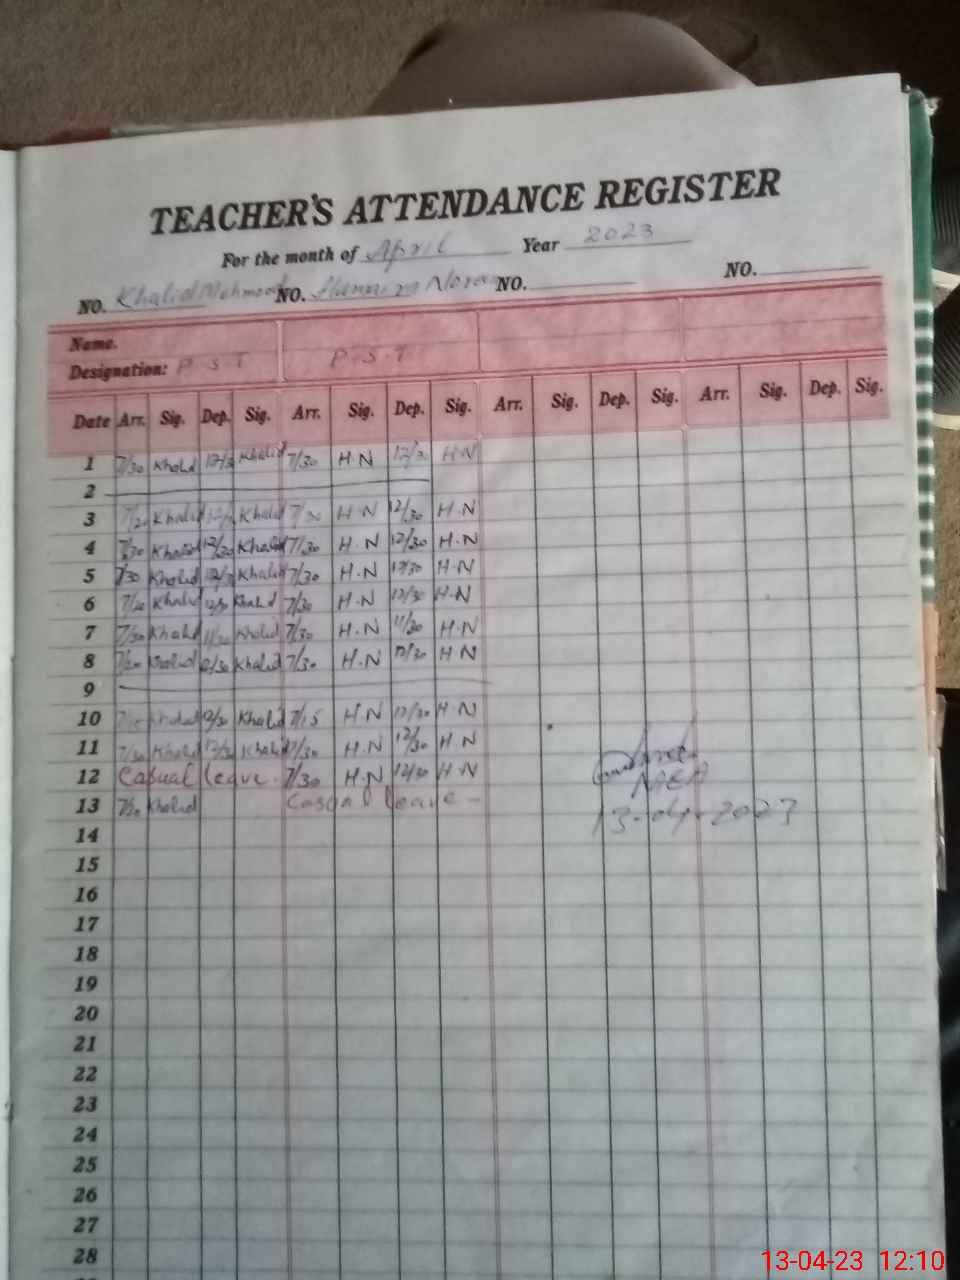 TEACHER'S ATTENDANCE REGISTER
For the month of April Year 2023
NO. Khalid Mahmood NO. NO. NO.
Name.
Designation: P.S.T P.S.T
Date Arr. Sig. Dep. Sig. Arr. Sig. Dep. Sig. Arr. Sig. Dep. Sig. Arr. Sig. Dep. Sig.
1 7/30 Khalid Khalid 7/30 H.N H.N
2
3 Khalid Khalid H.N 12/30 H.N
4 7/30 Khalid 12/30 Khalid 7/30 H.N 12/30 H.N
5 7/30 Khalid Khalid 7/30 H.N 12/30 H.N
6 Khalid Khalid 7/30 H.N 12/30 H.N
7 7/30 Khalid 11/30 Khalid 7/30 H.N 11/30 H.N
8 Khalid 12/30 Khalid 7/30 H.N 12/30 H N
9
10 Khalid 12/30 Khalid 7/15 H.N 12/30 H.N
11 7/30 Khalid Khalid 7/30 H.N 12/30 H N
12 Casual leave. 7/30 H.N 12/30 H.N
13 Khalid Casual leave -
MEA
13-04-2023
14
15
16
17
18
19
20
21
22
23
24
25
26
27
28
13-04-23 12:10